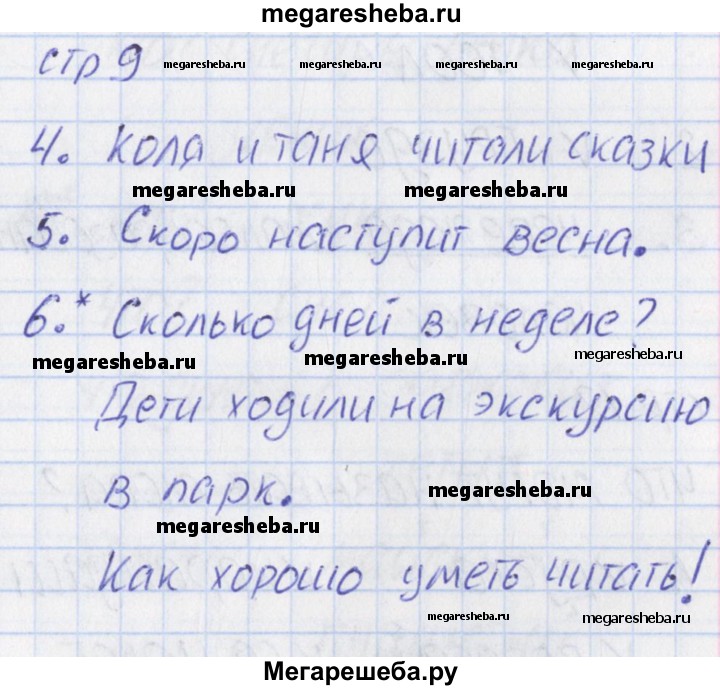 megaresheba.ru
стр 9 megaresheba.ru megaresheba.ru megaresheba.ru
4. Коля и таня читали сказки
megaresheba.ru megaresheba.ru
5. Скоро наступит весна.
6.* Сколько дней в неделе?
megaresheba.ru megaresheba.ru megaresheba.ru
Дети ходили на экскурсию
в парк. megaresheba.ru
megaresheba.ru
Как хорошо уметь читать!
megaresheba.ru megaresheba.ru
Мегарешеба.ру